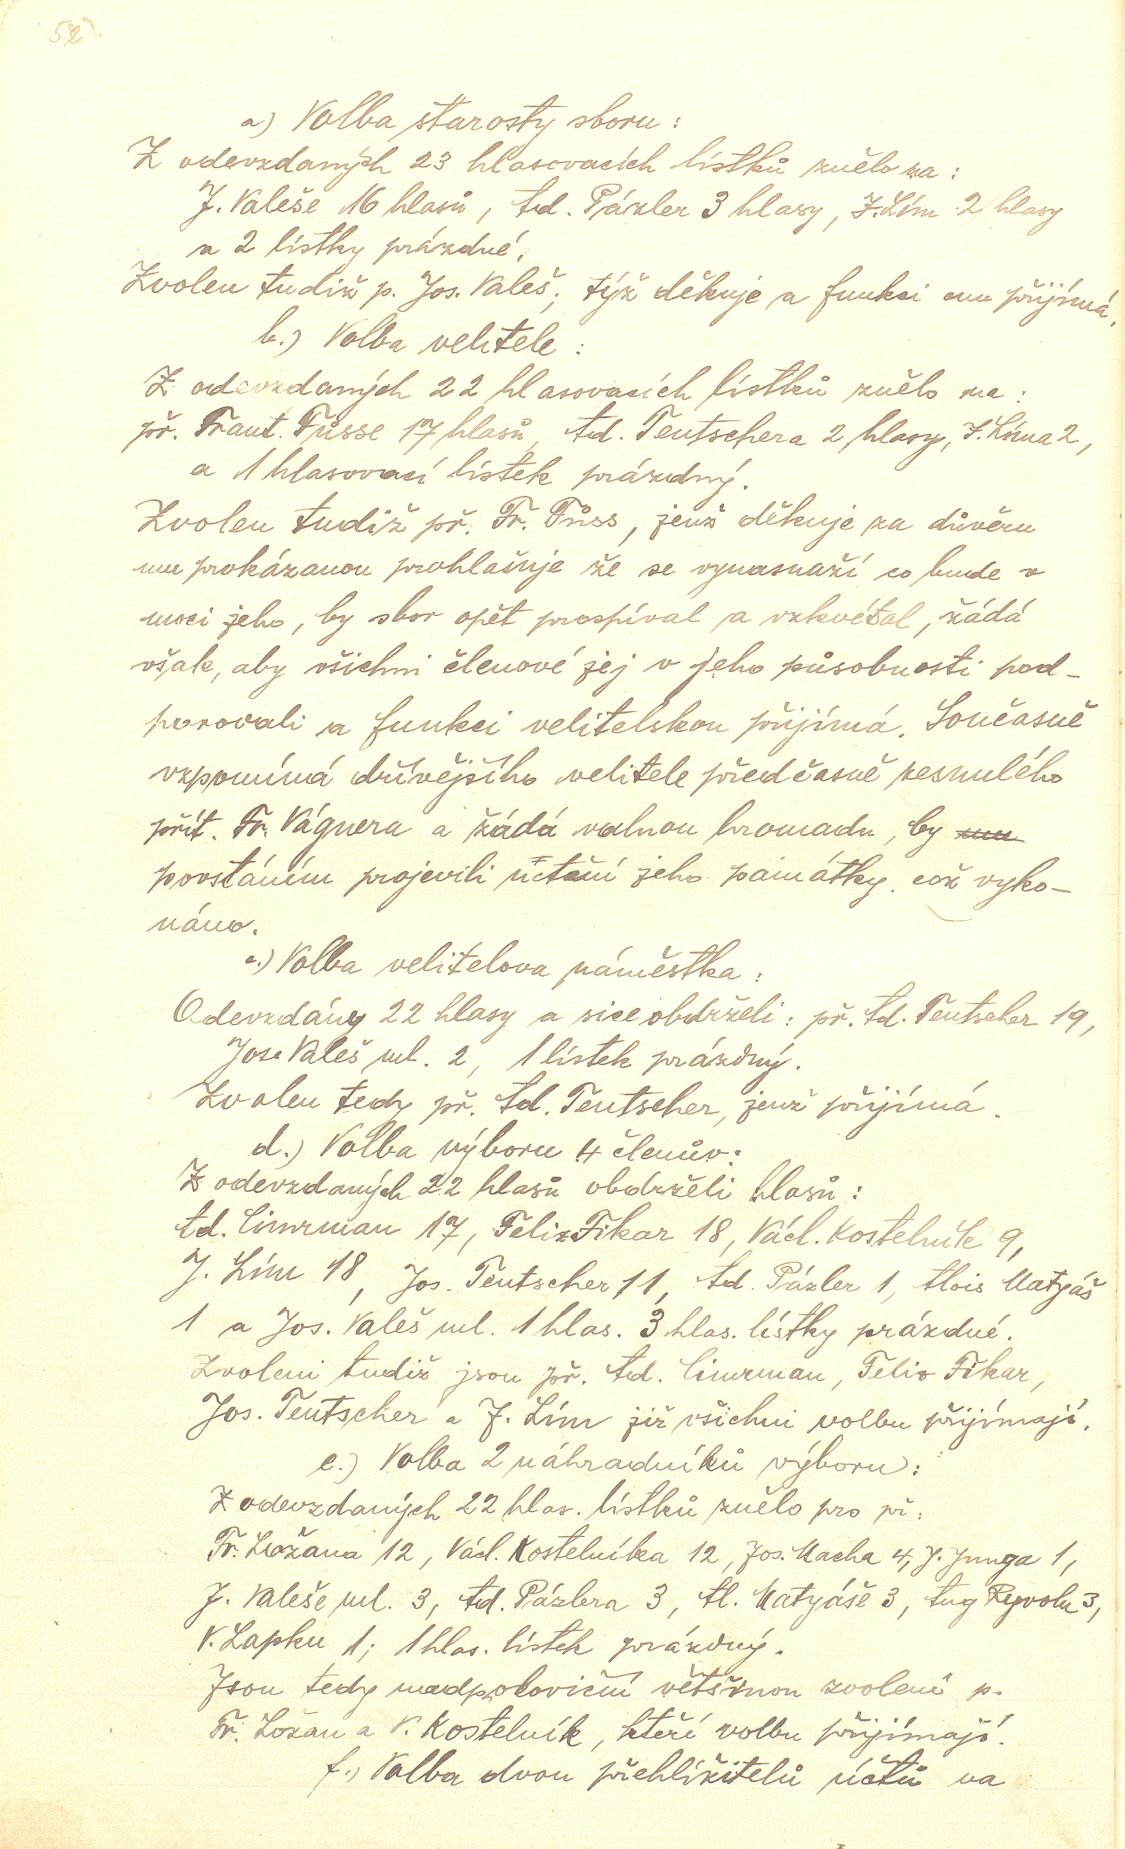 52
a) Volba starosty sboru :
Z odevzdaných 23 hlasovacích lístků znělo za :
J. Valeše 16 hlasů, Ad. Pázler 3 hlasy, J. Lím 2 hlasy
a 2 lístky prázdné.
Zvolen tudiž p. Jos. Valeš; týž děkuje a funkci onu přijímá.
b.) Volba velitele :
Z odevzdaných 22 hlasovacích lístků znělo na :
př. Frant. Füsse 17 hlasů, Ad. Teutschera 2 hlasy, J. Líma 2,
a 1 hlasovací lístek prázdný.
Zvolen tudiž př. Fr. Füss, jenž děkuje za důvěru
mu prokázanou prohlašuje že se vynasnaží co bude v
moci jeho, by sbor opět prospíval a vzkvétal, žádá
však, aby všichni členové jej v jeho působnosti pod-
porovali a funkci velitelskou přijímá. Současně
vzpomíná dřívějšího velitele předčasně zesnulého
přít. Fr. Vágnera a žádá valnou hromadu, by
povstáním projevili úctění jeho památky. což vyko-
náno.
c.) Volba velitelova náměstka :
Odevzdány 22 hlasy a sice obdrželi : př. Ad. Teutscher 19,
Jos. Valeš ml. 2, 1 lístek prázdný.
Zvolen tedy př. Ad. Teutscher, jenž přijímá.
d.) Volba výboru 4 členův :
Z odevzdaných 22 hlasů obdrželi hlasů :
Ad. Cimrman 17, Felix Fikar 18, Václ. Kostelník 9,
J. Lím 18, Jos. Teutscher 11, Ad. Pázler 1, Alois Matyáš
1 a Jos. Valeš ml. 1 hlas. 3 hlas. lístky prázdné.
Zvoleni tudiž jsou př. Ad. Cimrman, Felix Fikar,
Jos. Teutscher a J. Lím již všichni volbu přijímají.
e.) Volba 2 náhradníků výboru :
Z odevzdaných 22 hlas. lístků znělo pro př :
Fr. Ložana 12, Václ. Kostelníka 12, Jos. Macha 4, J. Junga 1,
J. Valeše ml. 3, Ad. Pázlera 3, Al. Matyáše 3, Aug 3,
V. Lapku 1; 1 hlas. lístek prázdný.
Jsou tedy nadpoloviční většinou zvoleni p.
Fr. Ložan a V. Kostelník, kteří volbu přijímají.
f.) Volba dvou přehlížitelů účtů na